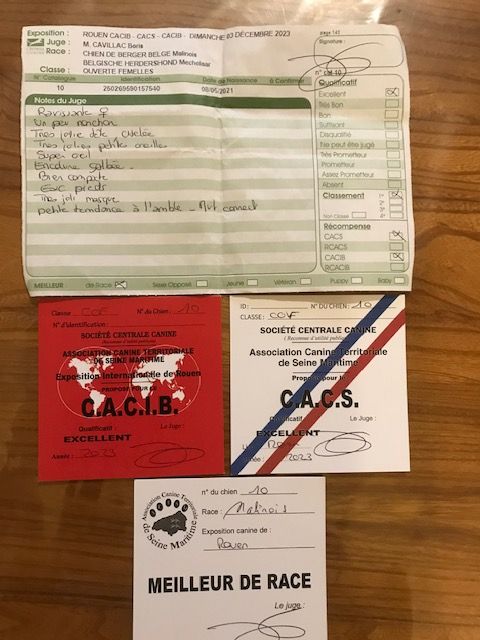 Exposition : ROUEN CACIB - CACS - CACIB - DIMANCHE 03 DÉCEMBRE 2023
page 142
Juge : M. CAVILLAC Boris
Signature :
Race : CHIEN DE BERGER BELGE Malinois
BELGISCHE HERDERSHOND Mechelaar
Classe : OUVERTE FEMELLES
N° Catalogue Identification Date de Naissance A Confirmer
10 250269590157540 08/05/2021
Notes du Juge
Ravissante ♀
Un peu
Très jolie tête ciselée
Très jolies petite oreille
Super oeil
Encolure galbée
Bien
Exc pieds
Très joli masque
petite tendance à l'amble - Mvt correct
Qualificatif
Excellent
Très Bon
Bon
Suffisant
Disqualifié
Ne peut être jugé
Très Prometteur
Prometteur
Assez Prometteur
Absent
Classement
Non Classé
Récompense
CACS
RCACS
CACIB
RCACIB
MEILLEUR de Race Sexe Opposé Jeune Vétéran Puppy Baby
Classe COF N° du Chien : 10
N° d'identification :
SOCIÉTÉ CENTRALE CANINE
(Reconnue d'utilité publique)
ASSOCIATION CANINE TERRITORIALE
DE SEINE MARITIME
Exposition Internationale de Rouen
PROPOSÉ POUR LE
C.A.C.I.B.
Qualificatif Le Juge :
EXCELLENT
Année : 2023
ID : N° DU CHIEN : 10
CLASSE : COVF
SOCIÉTÉ CENTRALE CANINE
(Reconnue d'utilité publique)
Association Canine Territoriale
de Seine Maritime
Proposé pour le
C.A.C.S.
Qualificatif Le Juge :
EXCELLENT
2023
Association Canine Territoriale
de Seine Maritime
n° du chien 10
Race : Malinois
Exposition canine de :
Rouen
MEILLEUR DE RACE
Le juge :